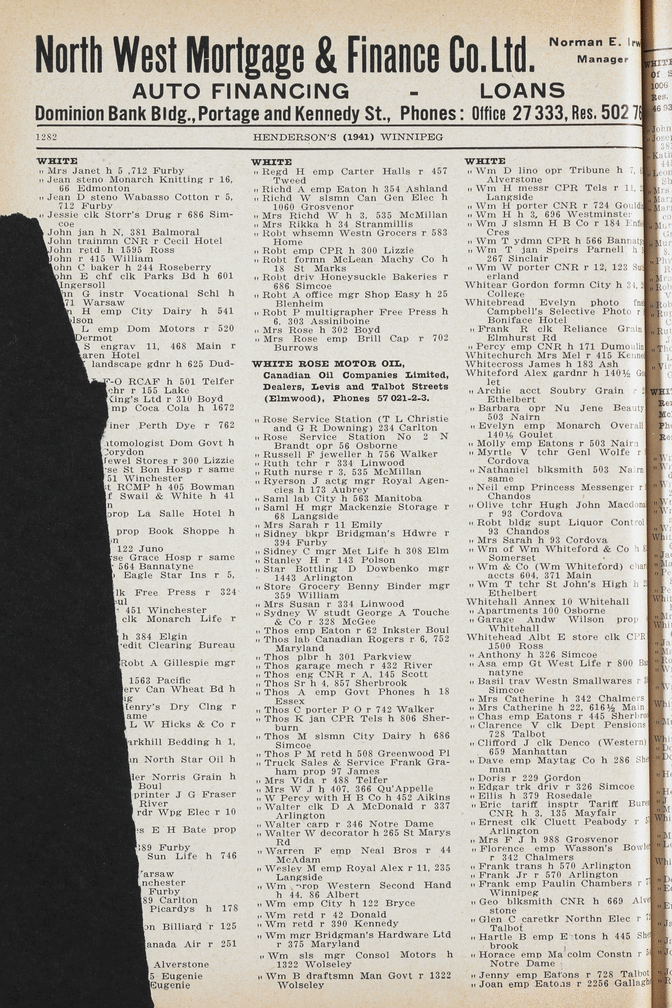 North West Mortgage & Finance Co. Ltd.
Norman E.
Manager
AUTO FINANCING - LOANS
Dominion Bank Bldg., Portage and Kennedy St., Phones: Office 27 333, Res. 502
1282
HENDERSON'S (1941) WINNIPEG
WHITE
„ Mrs Janet h 5 ,712 Furby
„ Jean steno Monarch Knitting r 16,
66 Edmonton
„ Jean D steno Wabasso Cotton r 5,
712 Furby
„ Jessie clk Storr's Drug r 686 Sim-
coe
John jan h N, 381 Balmoral
John trainmn CNR r Cecil Hotel
John retd h 1595 Ross
John r 415 William
John C baker h 244 Roseberry
John E chf clk Parks Bd h 601
Ingersoll
G instr Vocational Schl h
71 Warsaw
H emp City Dairy h 541
L emp Dom Motors r 520
S engrav 11, 468 Main r
Hotel
landscape gdnr h 625 Dud-
RCAF h 501 Telfer
r 155 Lake
King's Ltd r 310 Boyd
mp Coca Cola h 1672
Perth Dye r 762
Dom Govt h
Corydon
Jewel Stores r 300 Lizzie
St Bon Hosp r same
51 Winchester
RCMP h 405 Bowman
Swail & White h 41
prop La Salle Hotel h
prop Book Shoppe h
122 Juno
Grace Hosp r same
564 Bannatyne
Eagle Star Ins r 5,
Free Press r 324
451 Winchester
clk Monarch Life r
h 384 Elgin
Clearing Bureau
Robt A Gillespie mgr
1563 Pacific
Can Wheat Bd h
Henry's Dry Clng r
L W Hicks & Co r
Bedding h 1,
North Star Oil h
Norris Grain h
printer J G Fraser
River
Wpg Elec r 10
E H Bate prop
Furby
Sun Life h 746
Furby
Carlton
Picardys h 178
Billiard r 125
Air r 251
Alverstone
Eugenie
Eugenie
WHITE
„ Regd H emp Carter Halls r 457
Tweed
„ Richd A emp Eaton h 354 Ashland
„ Richd W slsmn Can Gen Elec h
1060 Grosvenor
„ Mrs Richd W h 3, 535 McMillan
„ Mrs Rikka h 34 Stranmillis
„ Robt whsemn Westn Grocers r 583
Home
„ Robt emp CPR h 300 Lizzie
„ Robt formn McLean Machy Co h
18 St Marks
„ Robt driv Honeysuckle Bakeries r
686 Simcoe
„ Robt A office mgr Shop Easy h 25
Blenheim
„ Robt P multigrapher Free Press h
6, 303 Assiniboine
„ Mrs Rose h 302 Boyd
„ Mrs Rose emp Brill Cap r 702
Burrows
WHITE ROSE MOTOR OIL,
Canadian Oil Companies Limited,
Dealers, Levis and Talbot Streets
(Elmwood), Phones 57 021-2-3.
„ Rose Service Station (T L Christie
and G R Downing) 234 Carlton
„ Rose Service Station No 2 N
Brandt opr 56 Osborne
„ Russell F jeweller h 756 Walker
„ Ruth tchr r 334 Linwood
„ Ruth nurse r 3, 535 McMillan
„ Ryerson J actg mgr Royal Agen-
cies h 173 Aubrey
„ Saml lab City h 563 Manitoba
„ Saml H mgr Mackenzie Storage r
68 Langside
„ Mrs Sarah r 11 Emily
„ Sidney bkpr Bridgman's Hdwre r
394 Furby
„ Sidney C mgr Met Life h 308 Elm
„ Stanley H r 143 Polson
„ Star Bottling D Dowbenko mgr
1443 Arlington
„ Store Grocery Benny Binder mgr
359 William
„ Mrs Susan r 334 Linwood
„ Sydney W studt George A Touche
& Co r 328 McGee
„ Thos emp Eaton r 62 Inkster Boul
„ Thos lab Canadian Rogers r 6, 752
Maryland
„ Thos plbr h 301 Parkview
„ Thos garage mech r 432 River
„ Thos eng CNR r A, 145 Scott
„ Thos Sr h 4, 857 Sherbrook
„ Thos A emp Govt Phones h 18
Essex
„ Thos C porter P O r 742 Walker
„ Thos K jan CPR Tels h 806 Sher-
burn
„ Thos M slsmn City Dairy h 686
Simcoe
„ Thos P M retd h 508 Greenwood Pl
„ Truck Sales & Service Frank Gra-
ham prop 97 James
„ Mrs Vida r 488 Telfer
„ Mrs W J h 407, 366 Qu'Appelle
„ W Percy with H B Co h 452 Aikins
„ Walter clk D A McDonald r 337
Arlington
„ Walter carp r 346 Notre Dame
„ Walter W decorator h 265 St Marys
Rd
„ Warren F emp Neal Bros r 44
McAdam
„ Wesley M emp Royal Alex r 11, 235
Langside
„ Wm prop Western Second Hand
h 44, 86 Albert
„ Wm emp City h 122 Bryce
„ Wm retd r 42 Donald
„ Wm retd r 390 Kennedy
„ Wm mgr Bridgman's Hardware Ltd
r 375 Maryland
„ Wm sls mgr Consol Motors h
1322 Wolseley
„ Wm B draftsmn Man Govt r 1322
Wolseley
WHITE
„ Wm D lino opr Tribune h 7,
Alverstone
„ Wm H messr CPR Tels r 11,
Langside
„ Wm H porter CNR r 724
„ Wm H h 3, 696 Westminster
„ Wm J slsmn H B Co r 184
Cres
„ Wm T ydmn CPR h 566
„ Wm T jan Speirs Parnell h
267 Sinclair
„ Wm W porter CNR r 12, 123
erland
Whitear Gordon formn City h
College
Whitebread Evelyn photo
Campbell's Selective Photo r
Boniface Hotel
„ Frank R clk Reliance Grain
Elmhurst Rd
„ Percy emp CNR h 171
Whitechurch Mrs Mel r 415
Whitecross James h 183 Ash
Whiteford Alex gardnr h 140½
let
„ Archie acct Soubry Grain r
Ethelbert
„ Barbara opr Nu Jene Beauty
503 Nairn
„ Evelyn emp Monarch Overall
140½ Goulet
„ Molly emp Eatons r 503 Nairn
„ Myrtle V tchr Genl Wolfe r
Cordova
„ Nathaniel blksmith 503 Nairn
same
„ Neil emp Princess Messenger r
Chandos
„ Olive tchr Hugh John
r 93 Cordova
„ Robt bldg supt Liquor Control
93 Chandos
„ Mrs Sarah h 93 Cordova
„ Wm of Wm Whiteford & Co h
Somerset
„ Wm & Co (Wm Whiteford)
accts 604, 371 Main
„ Wm T tchr St John's High h
Ethelbert
Whitehall Annex 10 Whitehall
„ Apartments 100 Osborne
„ Garage Andw Wilson prop
Whitehall
Whitehead Albt E store clk CPR
1500 Ross
„ Anthony h 326 Simcoe
„ Asa emp Gt West Life r 800
natyne
„ Basil trav Westn Smallwares r
Simcoe
„ Mrs Catherine h 342 Chalmers
„ Mrs Catherine h 22, 616½ Main
„ Chas emp Eatons r 445
„ Clarence V clk Dept Pensions
728 Talbot
„ Clifford J clk Denco (Western)
659 Manhattan
„ Dave emp Maytag Co h 286
man
„ Doris r 229 Gordon
„ Edgar trk driv r 326 Simcoe
„ Ellis h 379 Rosedale
„ Eric tariff insptr Tariff
CNR h 3, 135 Mayfair
„ Ernest clk Cluett Peabody r
Arlington
„ Mrs F J h 988 Grosvenor
„ Florence emp Wasson's
r 342 Chalmers
„ Frank trans h 570 Arlington
„ Frank Jr r 570 Arlington
„ Frank emp Paulin Chambers r
Winnipeg
„ Geo blksmith CNR h 669
stone
„ Glen C caretkr Northn Elec r
Talbot
„ Hartle B emp Eatons h 445
brook
„ Horace emp Malcolm Constn r
Notre Dame
„ Jenny emp Eatons r 728 Talbot
„ Joan emp Eatons r 2256